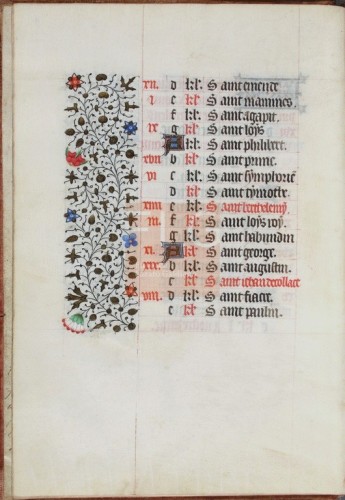 xii. d kl. Saint emence
i c kl. Saint mammes.
f kl. Saint agapit.
ix g kl. Saint loys
A kl. Saint philibert.
xvii b kl. Saint prime.
vi c kl. Saint symphorien
d kl. Saint tymothe.
xiiii e kl. Saint berthelemy.
iii. f kl. Saint loys roy.
g kl. Saint habundin
xi. A kl. Saint george.
xix. b kl. Saint augustin.
c kl. Saint iehan decollace
viii. d kl. Saint fiacre.
e kl. Saint paulin.